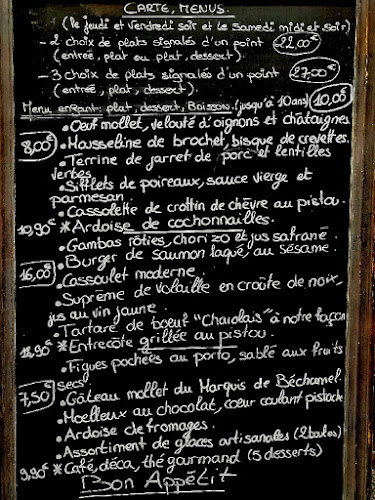 CARTE, MENUS.
(le jeudi et vendredi soir et le samedi midi et soir)
- 2 choix de plats signalés d'un point 22,00€
(entrée, plat ou plat, dessert).
- 3 choix de plats signalés d'un point 27,00€
(entrée, plat, dessert).
Menu enfant: plat, dessert, Boisson. (jusqu'à 10 ans) 10,00€
• Oeuf mollet, velouté d'oignons et chataignes
8,00€ • Mousseline de brochet, bisque de crevettes.
• Terrine de jarret de porc et lentilles
vertes
• Sifflets de poireaux, sauce vierge et
parmesan
• Cassolette de crottin de chèvre au pistou.
10,90€ * Ardoise de cochonnailles.
• Gambas rôties, chorizo et jus safrané.
• Burger de saumon laqué, au sésame.
16,00€ • Cassoulet moderne
• Suprême de volaille en croûte de noix,
jus au vin jaune.
• Tartare de boeuf "Charolais" à notre façon
18,90€ * Entrecôte grillée au pistou.
• Figues pochées au porto, sablé aux fruits
secs
7,50€ • Gâteau mollet du Marquis de Béchamel.
• Moelleux au chocolat, coeur coulant pistache
• Ardoise de fromages.
• Assortiment de glaces artisanales (2 boules)
9,90€ * Café, déca, thé gourmand (5 desserts)
Bon Appétit